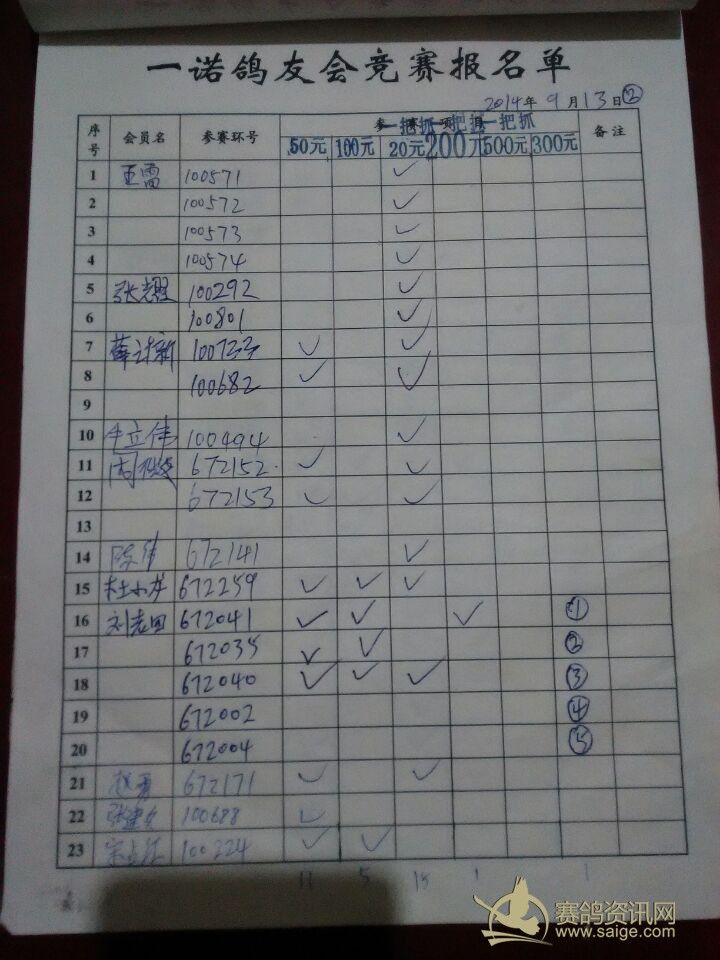 一诺鸽友会竞赛报名单
2014年9月13日②
序号 会员名 参赛环号 参赛项目 备注
一把抓 一把抓 一把抓
50元 100元 20元 200元 500元 300元
1 王雷 100571 ✓
2 100572 ✓
3 100573 ✓
4 100574 ✓
5 100292 ✓
6 100801 ✓
7 100733 ✓ ✓
8 100682 ✓ ✓
9
10 牛立伟 100494 ✓
11 672152 ✓ ✓
12 672153 ✓ ✓
13
14 陈伟 672141 ✓
15 杜小龙 672259 ✓ ✓ ✓
16 刘志田 672041 ✓ ✓ ✓ ①
17 672035 ✓ ✓ ②
18 672040 ✓ ✓ ✓ ③
19 672002 ④
20 672004 ⑤
21 赵勇 672171 ✓ ✓
22 100688 ✓
23 100224 ✓ ✓
11 5 18 1 1
赛鸽资讯网
www.saige.com